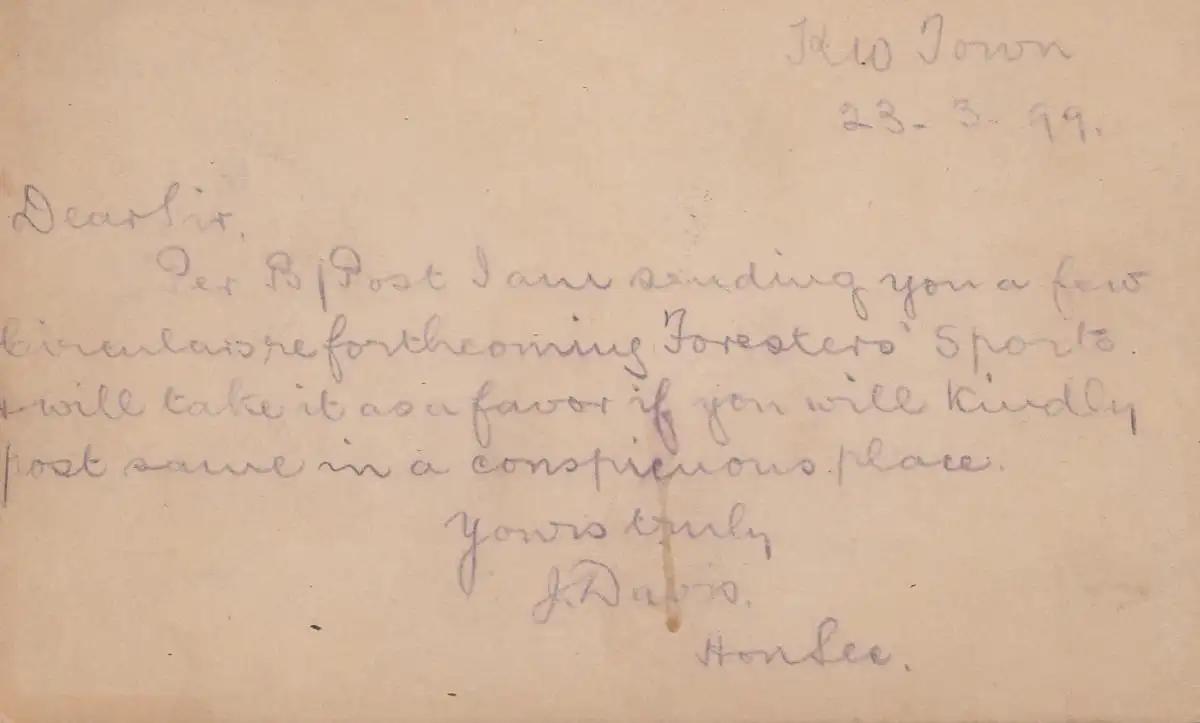 KW Town
23-3-99.
Dear Sir,
Per B/Post I am sending you a few
Circulars re forthcoming Foresters' Sports
& will take it as a favor if you will kindly
post same in a conspicuous place.
Yours truly
J. Davis.
Hon Sec.